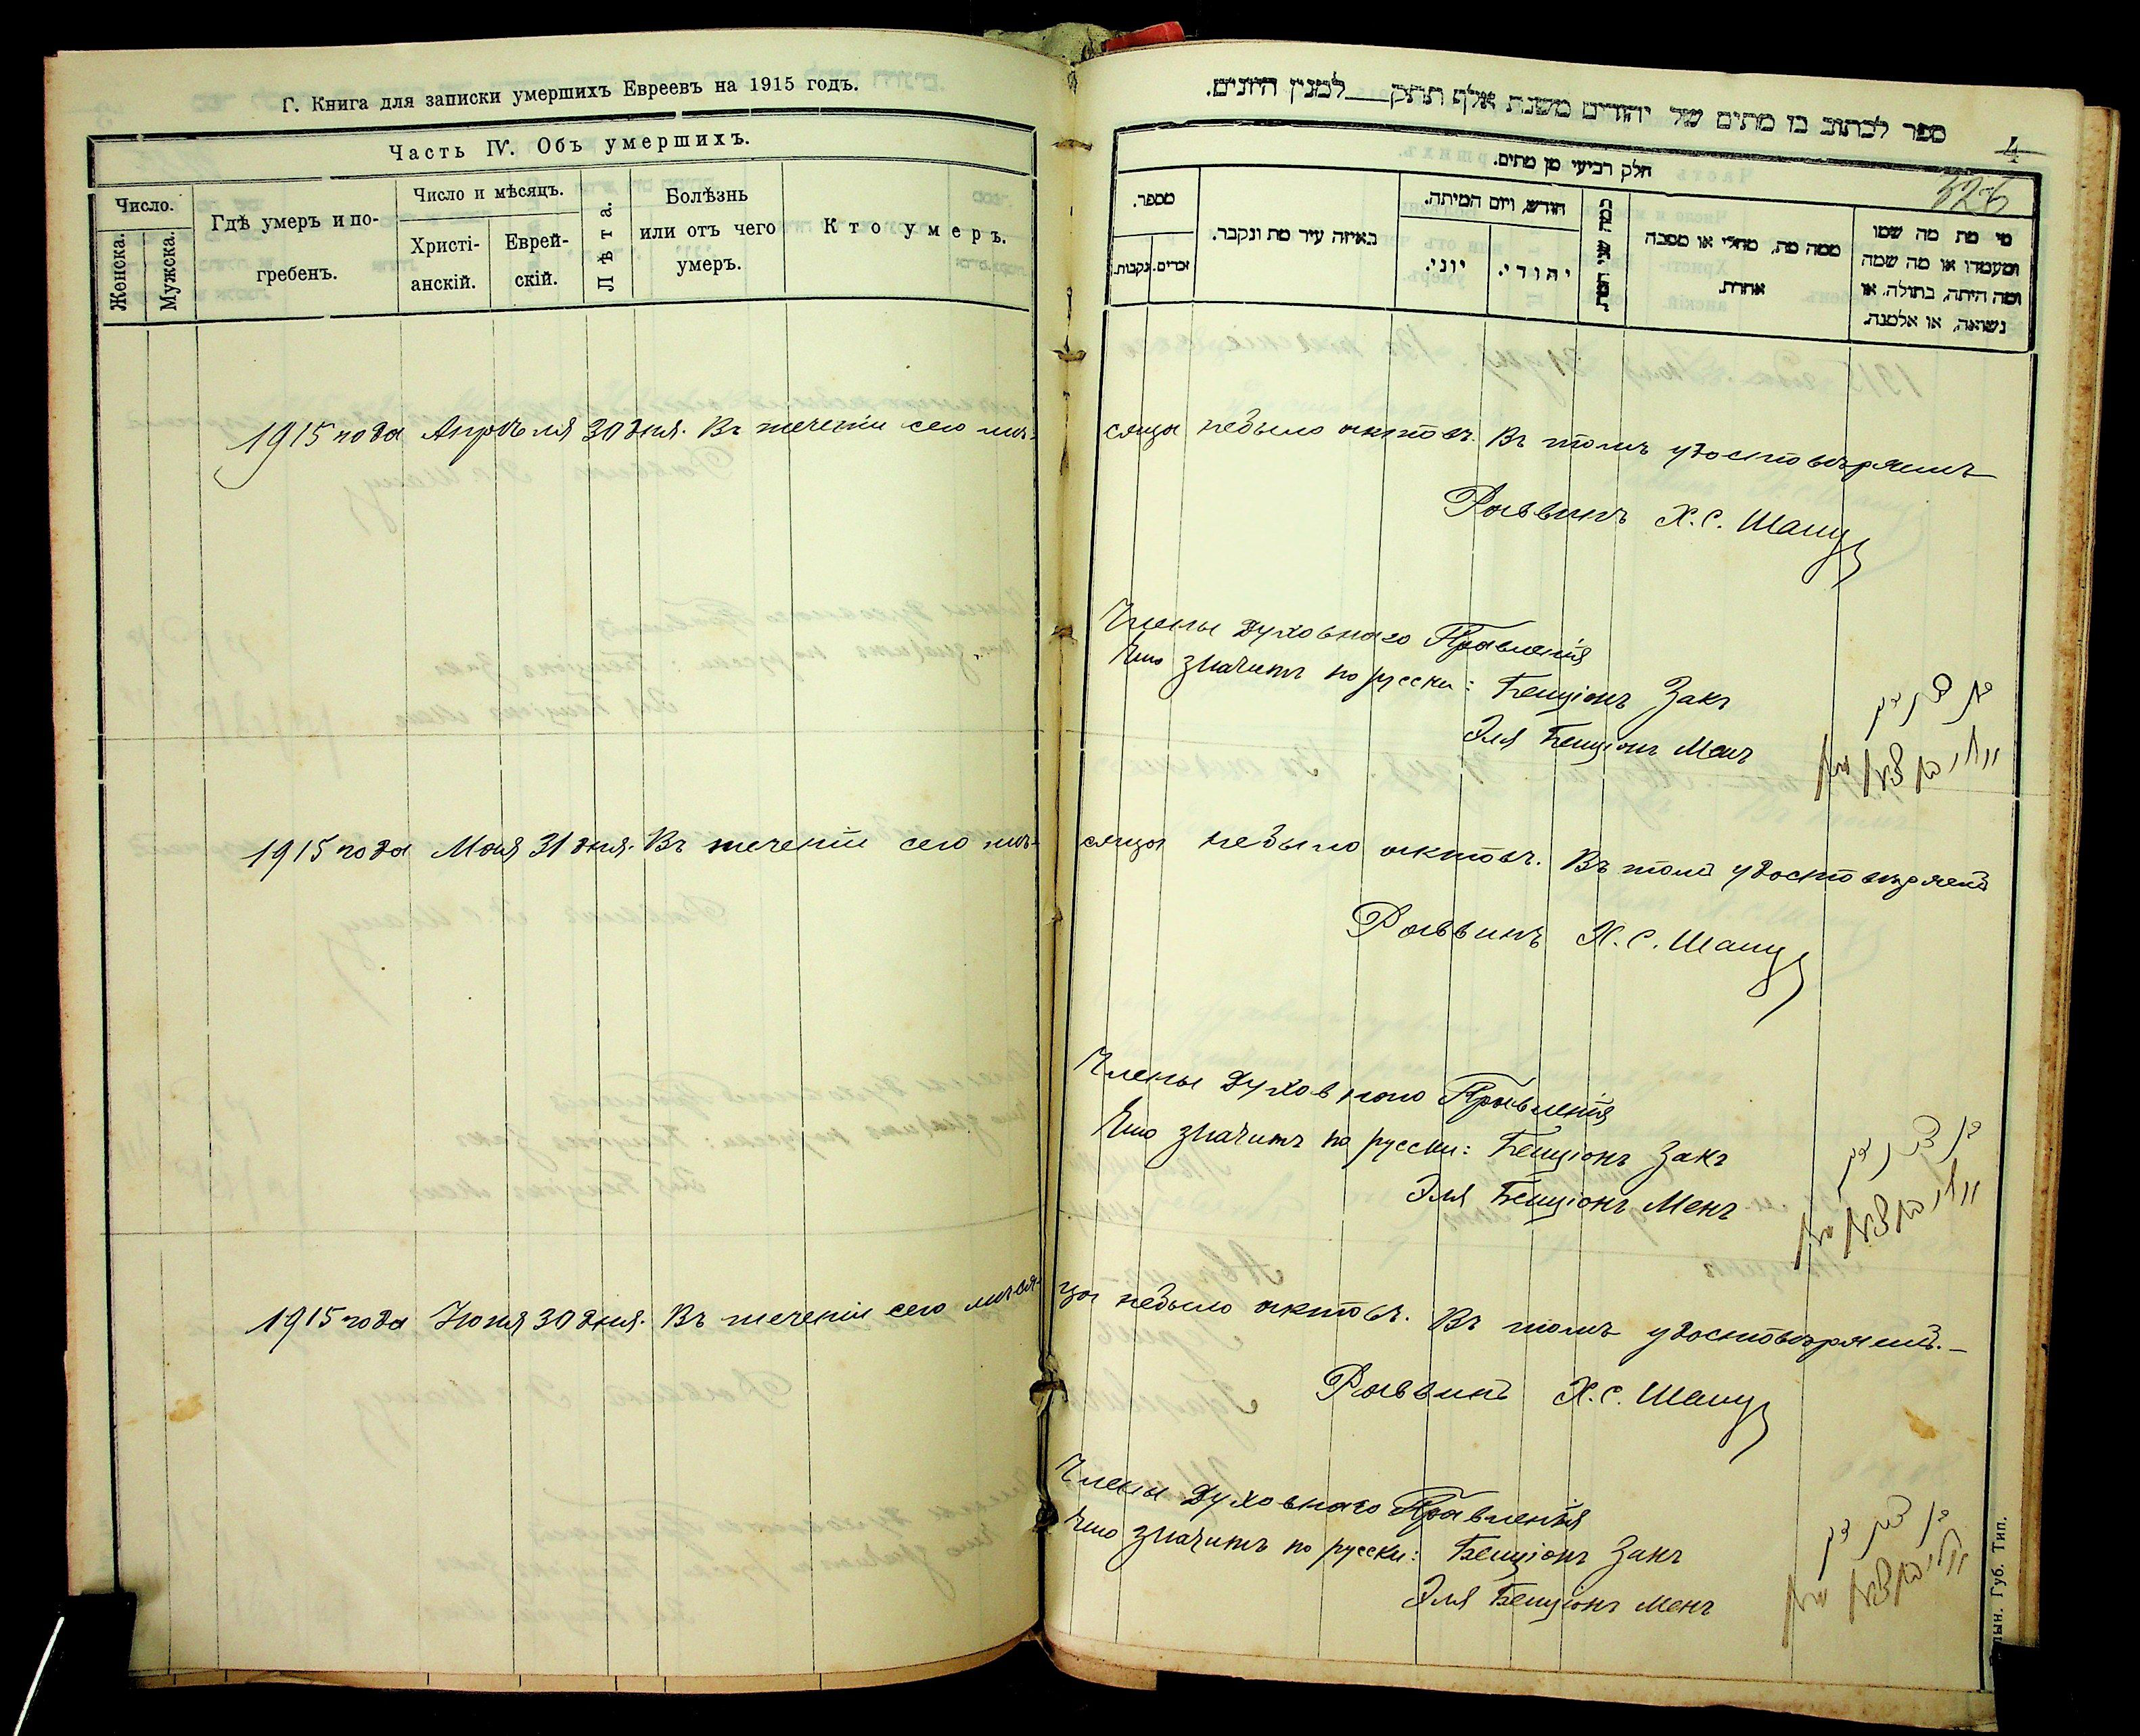 Г. Книга для записки умершихъ Евреевъ на 1915 годъ.
Часть IV. Объ умершихъ.
Число.
Женска.
Мужска.
Гдѣ умеръ и по-
гребенъ.
Число и мѣсяцъ.
Христі-
анскій.
Еврей-
скій.
Лѣта.
Болѣзнь
или отъ чего
умеръ.
Кто умеръ.
1915 года Апрѣля 30 дня. Въ теченіи сего мѣ-
1915 года Мая 31 дня. Въ теченіи сего мѣ-
1915 года Іюня 30 дня. Въ теченіи сего мѣся-
ספר לכתוב בו מתים של יהודים משנת אלף תתק___למנין היונים.
4
326
חלק רביעי מן מתים.
מספר.
זכרים.
נקבות.
באיזה עיר מת ונקבר.
חודש, ויום המיתה.
יוני.
יהודי.
כמה שני המת.
ממה מת, מחלי או מסבה
אחרת.
מי מת מה שמו
ומעמדו או מה שמה
ומה היתה, בתולה, או
נשואה, או אלמנה.
сяца небыло актовъ. Въ томъ удостовѣряемъ
Раввинъ Х. С. Шапу
Члены Духовнаго Правленія
Что значитъ по русски: Бенціонъ Закъ
בן ציון זק
Эля Бенціонъ Менъ
сяца небыло актовъ. Въ томъ удостовѣряемъ
Раввинъ Х. С. Шапу
Члены Духовного Правленія
Что значитъ по русски: Бенціонъ Закъ
בן ציון זק
Эля Бенціонъ Менъ
ца небыло актовъ. Въ томъ удостовѣряемъ.-
Раввинъ Х. С. Шапу
Члены Духовнаго Правленія
Что значитъ по русски: Бенціонъ Закъ
בן ציון זק
Эля Бенціонъ Менъ
Губ. Тип.